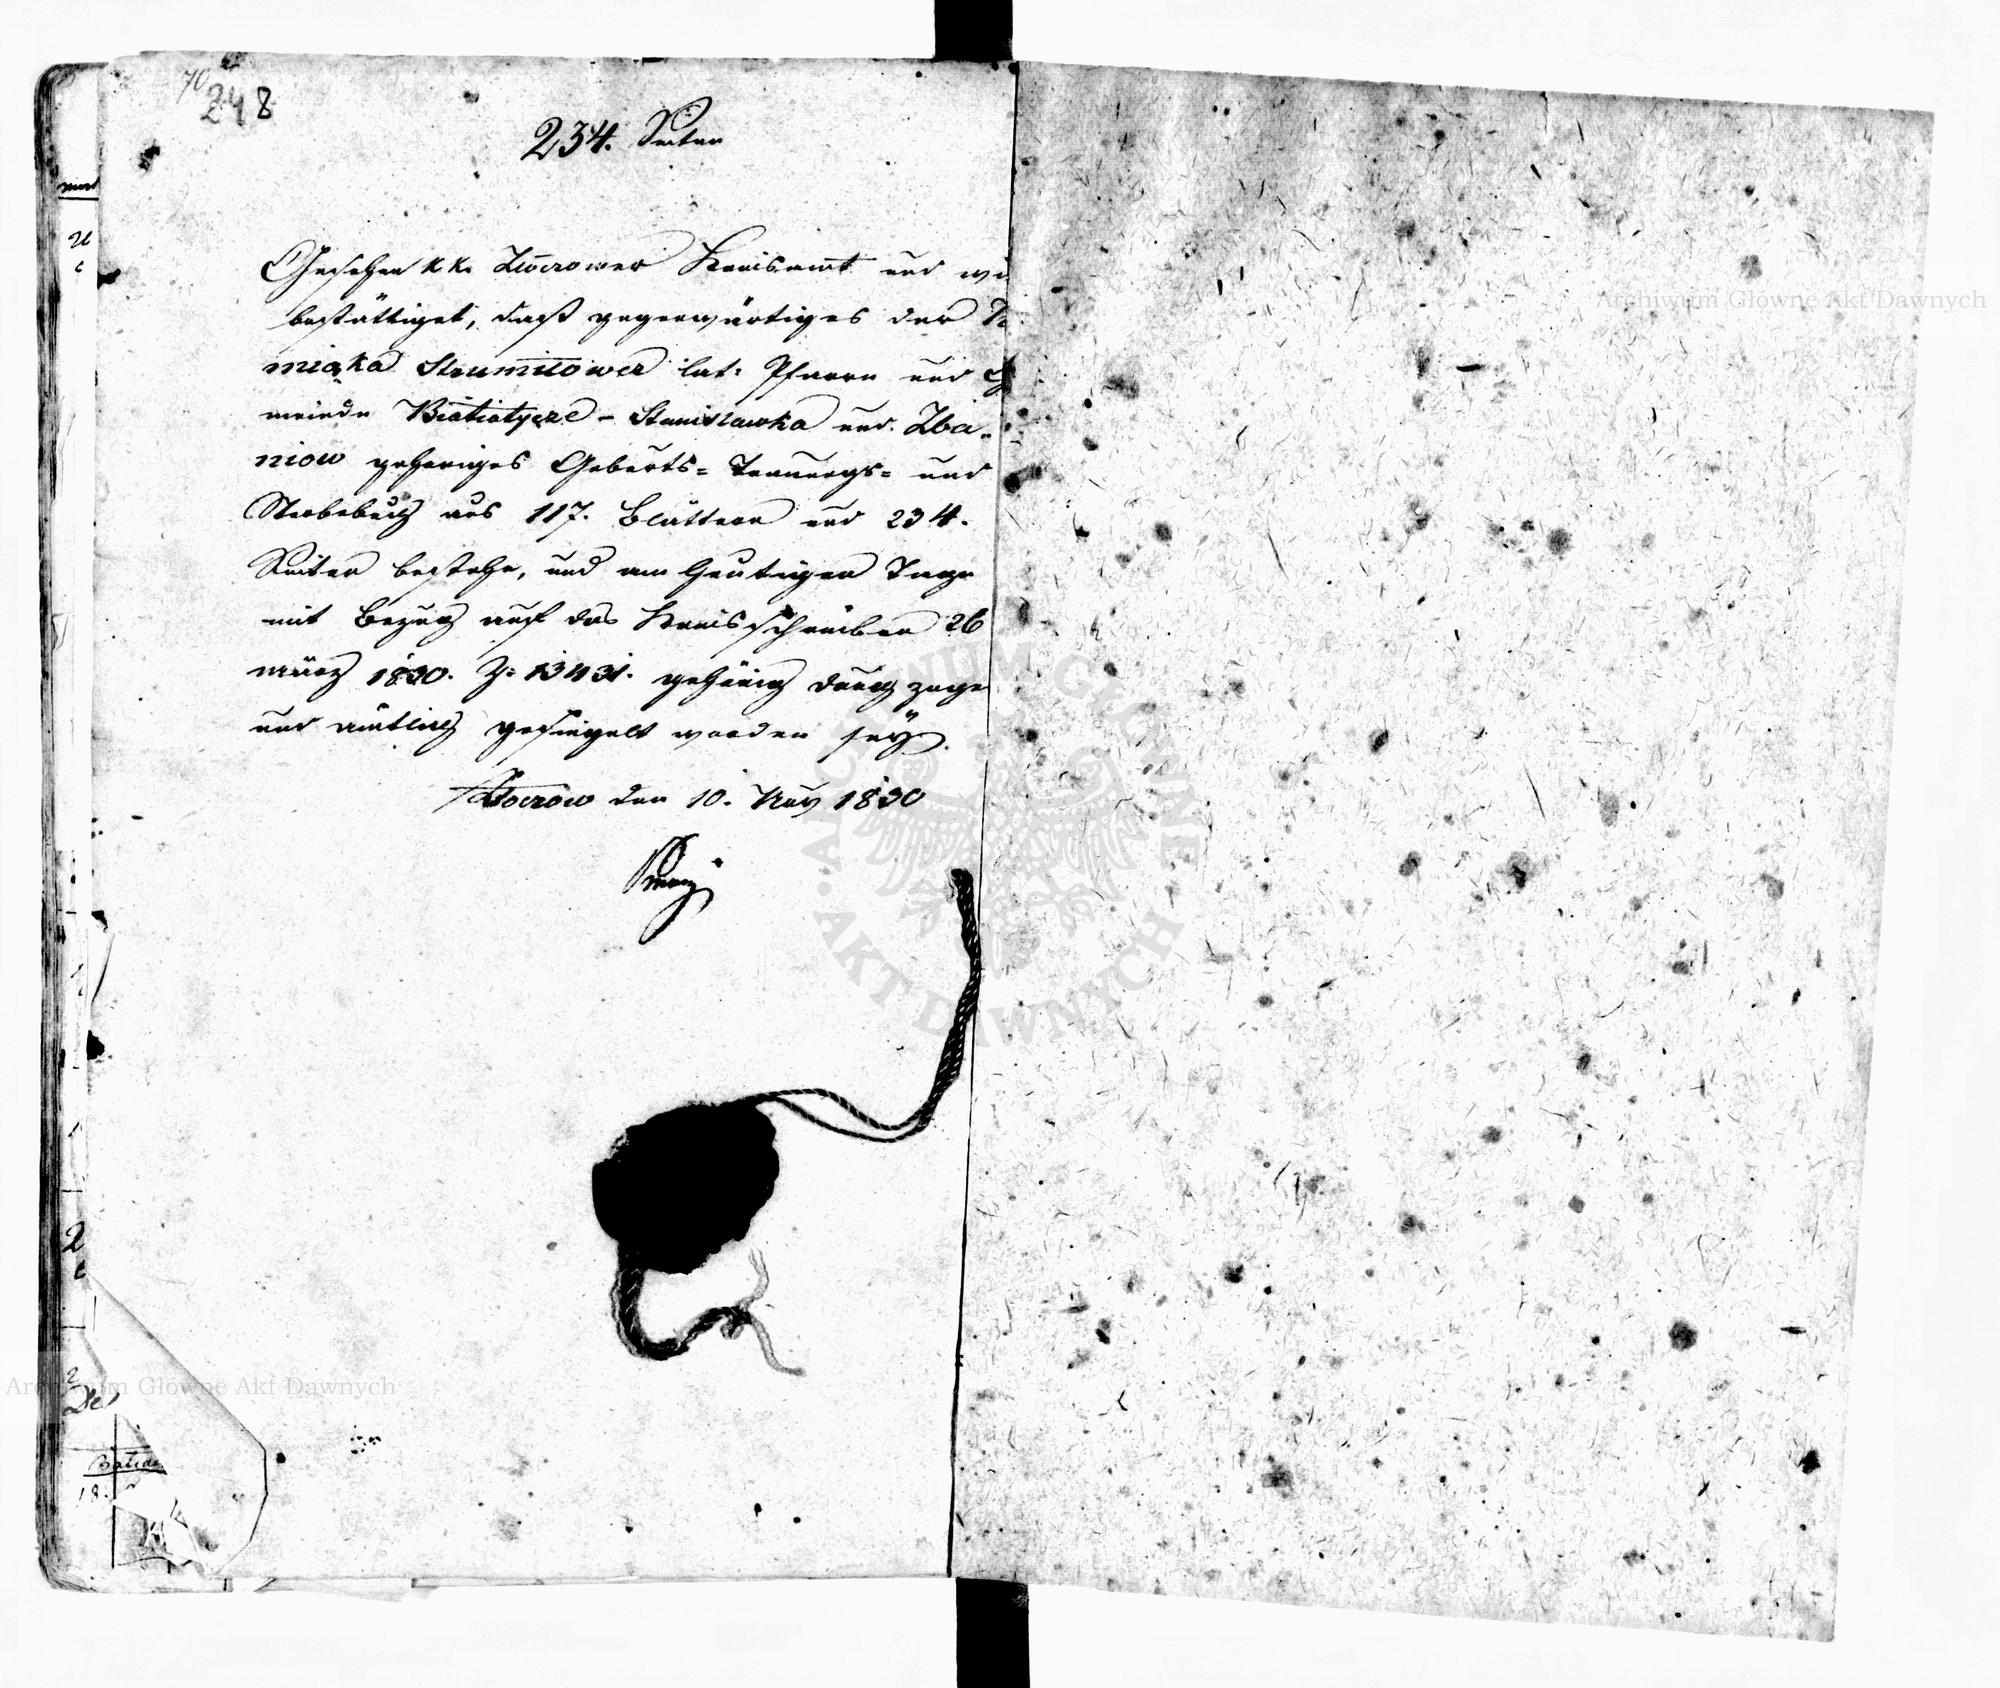 70
248
234. Seiten
Gesehen kk. Zloczower Kreisamt und wi
bestättiget, daß gegenwärtiges der
mionka Strumilower lat: Pfarre und G
meinde Białiatycze - Stanislawka und Zba-
niow gehöriges Geburts= Trauungs= und
Sterbebuch aus 117. Blättern und 234.
Seiten bestehe, und am heutigen Tage
mit Bezug auf das Kreisschreiben 26
März 1830. Z: 13431. gehörig durchzoge
und ämtlich gesiegelt worden sey.
Złoczow den 10. Nov 1830
Archiwum Główne Akt Dawnych
ARCHIWUM GŁÓWNE AKT DAWNYCH
Archiwum Główne Akt Dawnych